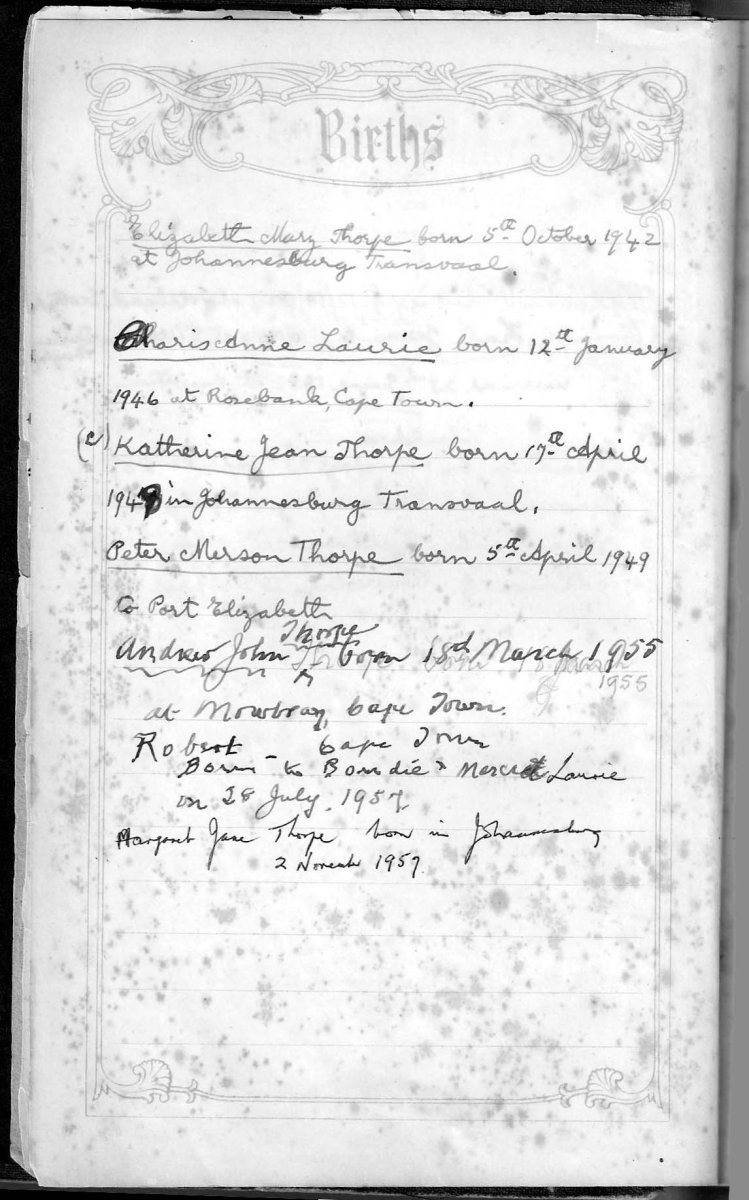 Births
Elizabeth Mary Thorpe born 5th October 1942
at Johannesburg Transvaal.
Charis Anne Laurie born 12th January
1946 at Rosebank, Cape Town.
(c) Katherine Jean Thorpe born 17th April
194 in Johannesburg Transvaal.
Peter Merson Thorpe born 5th April 1949
Port Elizabeth
Thorpe
Andrew John ^ born 18d March 1955
1955
at Mowbray, Cape Town.
Robert Cape Town
Born - to &
Laurie
on 28 July, 1957
Margaret Jane Thorpe born in Johannesburg
2 November 1957